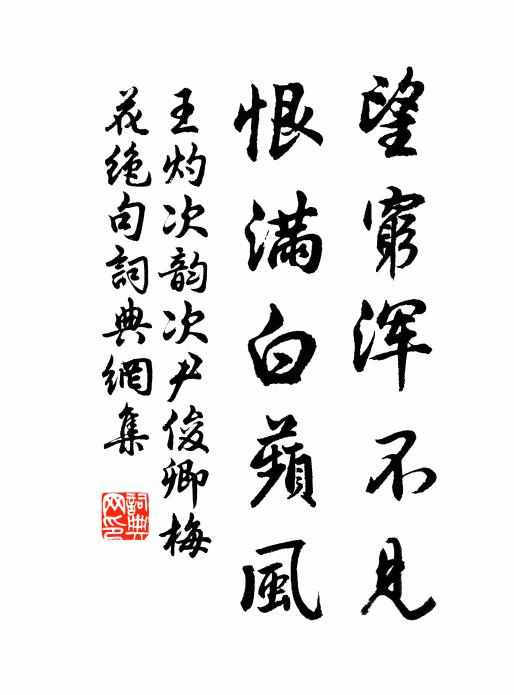 望窮浑不見
恨滿白蘋風
王灼次韵次尹俊卿梅
花绝句詞典網集
詞典网印